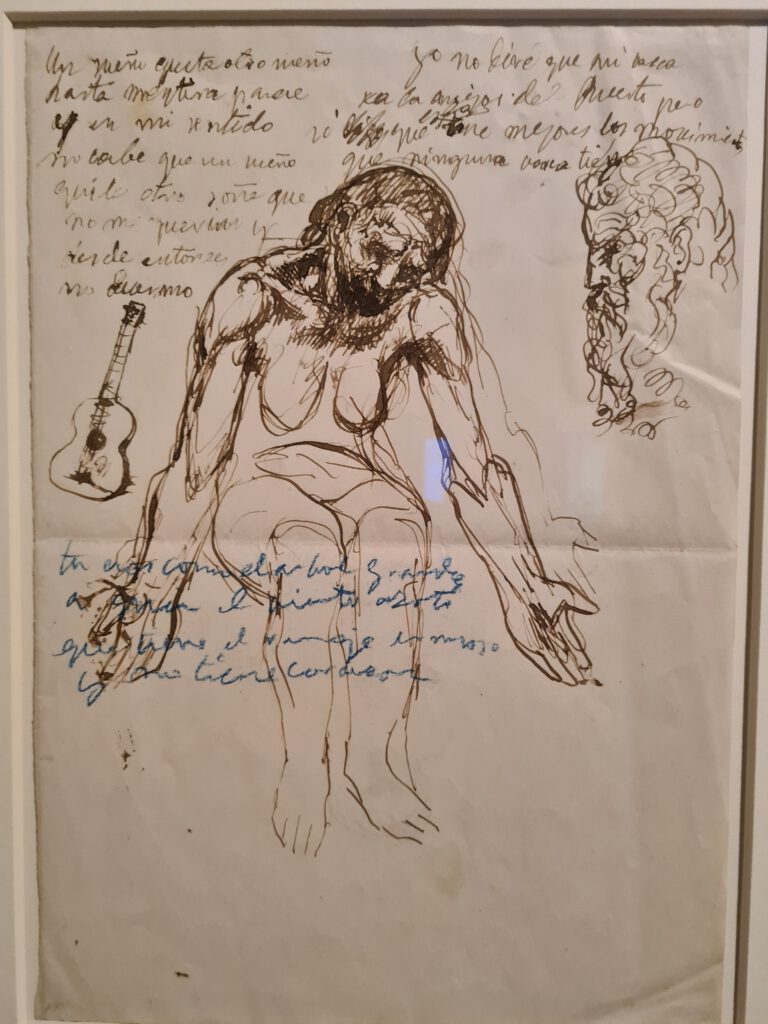 Un sueño quita otro sueño
hasta mentira parece
y en mi sentido
no cabe que un sueño
quite otro soñe que
no me querias y
desde entonces
no duermo
yo no diré que mi vaca
sea la mejor del Puerto pero
si digo que tiene mejores los movimientos
que ninguna vaca tiene
tu eres como el arbol grande
a quien el viento azota
que tiene el ramaje inmenso
y no tiene corason